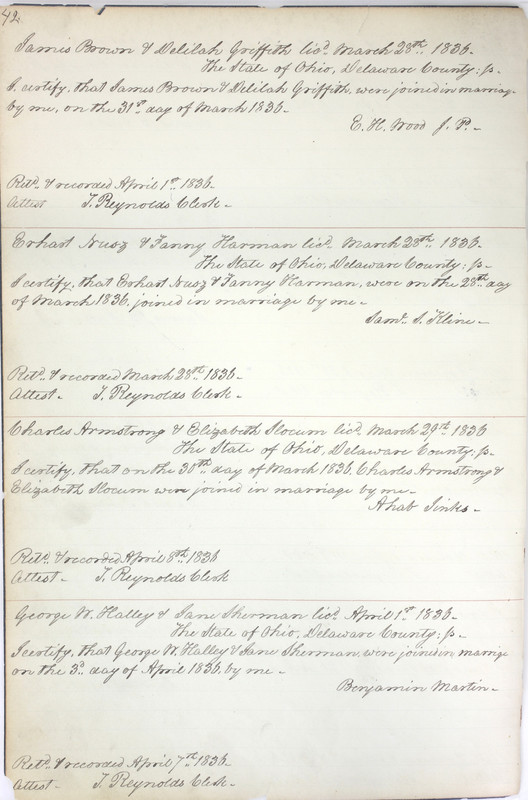 42
James Brown & Delilah Griffith licd. March 28th. 1836.
The State of Ohio, Delaware County: ss.
I certify, that James Brown & Delilah Griffith, were joined in marriage
by me, on the 31st. day of March 1836.
E. H. Wood J. P.
Retd. & recorded April 1st. 1836.
Attest T. Reynolds Clerk
Erhart Nusz & Fanny Harman licd. March 28th. 1836.
The State of Ohio, Delaware County: ss
I certify, that Erhart Nusz & Fanny Harman, were on the 28th. day
of March 1836, joined in marriage by me
Saml. S. Kline
Retd. & recorded March 28th. 1836
Attest. T. Reynolds Clerk
Charles Armstrong & Elizabeth Slocum licd. March 29th. 1836
The State of Ohio, Delaware County: ss.
I certify, that on the 30th. day of March 1836, Charles Armstrong &
Elizabeth Slocum were joined in marriage by me
Ahab Jinks
Retd. & recorded April 8th. 1836
Attest T. Reynolds Clerk
George W. Halley & Jane Sherman licd. April 1st. 1836.
The State of Ohio, Delaware County: ss
I certify, that George W. Halley & Jane Sherman, were joined in marriage
on the 3d. day of April 1836, by me
Benjamin Martin
Retd. & recorded April 7th. 1836.
Attest T. Reynolds Clerk